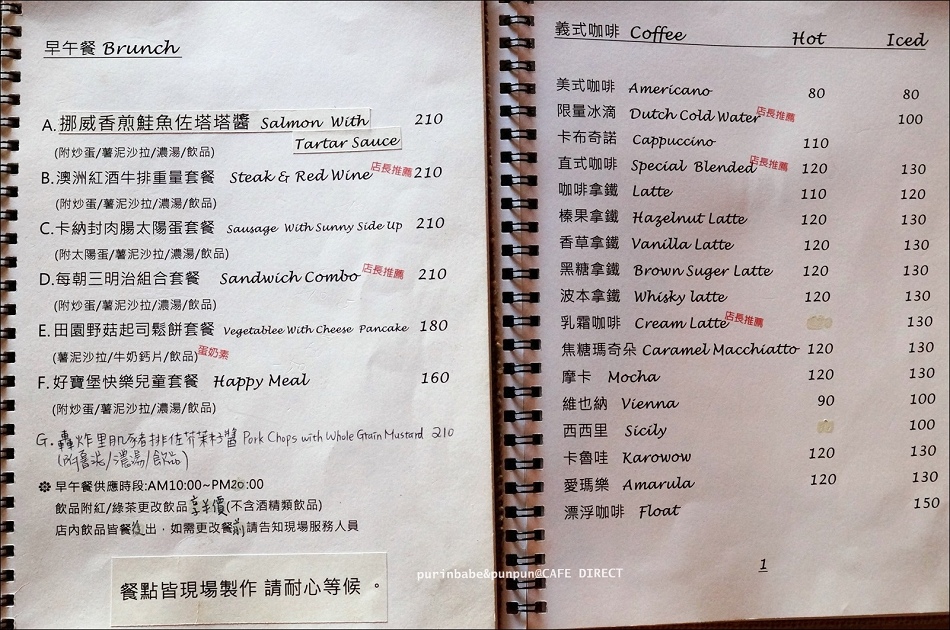 早午餐 Brunch
A.挪威香煎鮭魚佐塔塔醬 Salmon With 210
Tartar Sauce
(附炒蛋/薯泥沙拉/濃湯/飲品)
B.澳洲紅酒牛排重量套餐 Steak & Red Wine 店長推薦 210
(附炒蛋/薯泥沙拉/濃湯/飲品)
C.卡納封肉腸太陽蛋套餐 Sausage With Sunny Side Up 210
(附太陽蛋/薯泥沙拉/濃湯/飲品)
D.每朝三明治組合套餐 Sandwich Combo 店長推薦 210
(附炒蛋/薯泥沙拉/濃湯/飲品)
E.田園野菇起司鬆餅套餐 Vegetablee With Cheese Pancake 180
(薯泥沙拉/牛奶鈣片/飲品) 蛋奶素
F.好寶堡快樂兒童套餐 Happy Meal 160
(附炒蛋/薯泥沙拉/濃湯/飲品)
G.轟炸里肌豬排佐芥茉籽醬 Pork Chops with Whole Grain Mustard 210
(附薯泥/濃湯/飲品)
早午餐供應時段:AM10:00~PM20:00
飲品附紅/綠茶更改飲品享半價(不含酒精類飲品)
店內飲品皆餐後出，如需更改餐前請告知現場服務人員
餐點皆現場製作 請耐心等候 。
義式咖啡 Coffee Hot Iced
美式咖啡 Americano 80 80
限量冰滴 Dutch Cold Water 店長推薦 100
卡布奇諾 Cappuccino 110
直式咖啡 Special Blended 店長推薦 120 130
咖啡拿鐵 Latte 110 120
榛果拿鐵 Hazelnut Latte 120 130
香草拿鐵 Vanilla Latte 120 130
黑糖拿鐵 Brown Suger Latte 120 130
波本拿鐵 Whisky latte 120 130
乳霜咖啡 Cream Latte 店長推薦 130
焦糖瑪奇朵 Caramel Macchiatto 120 130
摩卡 Mocha 120 130
維也納 Vienna 90 100
西西里 Sicily 100
卡魯哇 Karowow 120 130
愛瑪樂 Amarula 120 130
漂浮咖啡 Float 150
1
purinbabe&punpun@CAFE DIRECT